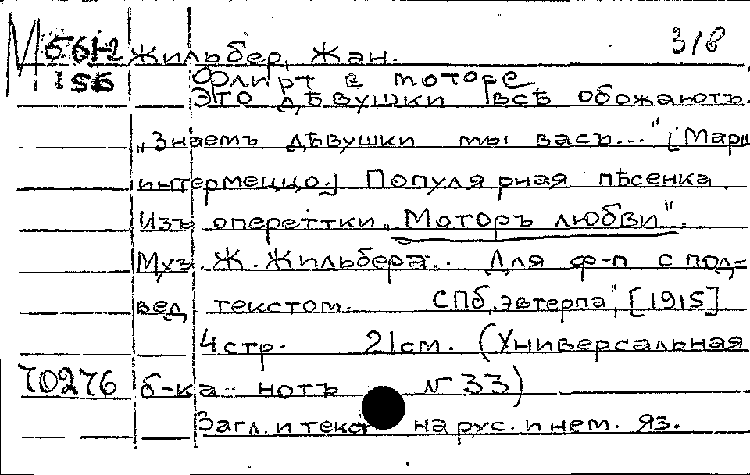 М 56Н2 Жильбер, Жан. 318
156 Флирт в моторе
Это дѣвушки всѣ обожаютъ.
„Знаемъ дѣвушки мы васъ..." [Марш
интермеццо.] Популярная пѣсенка
Изъ опереттки „Моторъ любви".
Муз. Ж. Жильбера. Для ф-п с под-
вед текстом. СПб, „Эвтерпа", [1915]
4 стр. 21 см. (Универсальная
70276 б-ка нотъ № 33)
Загл. и текст на рус. и нем. яз.